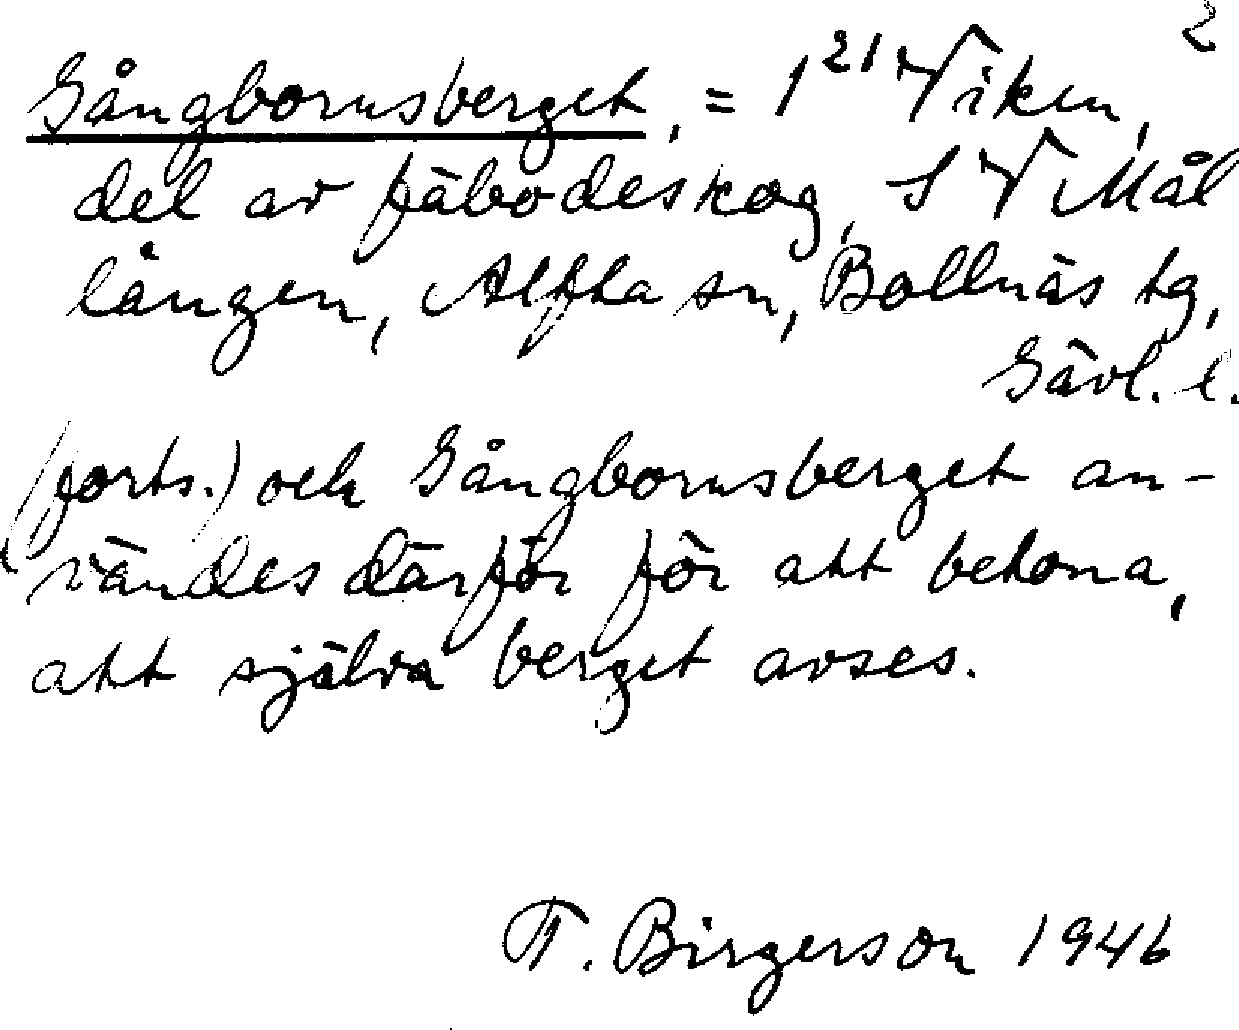 2
Gångbornsberget, = 1²¹ Viken,
del av fäbodeskog, S V Mål
lången, Alfta sn, Bollnäs tg,
Gävl. l.
(forts.) och Gångbornsberget an-
vändes därför för att betona,
att själva berget avses.
T. Birgerson 1946